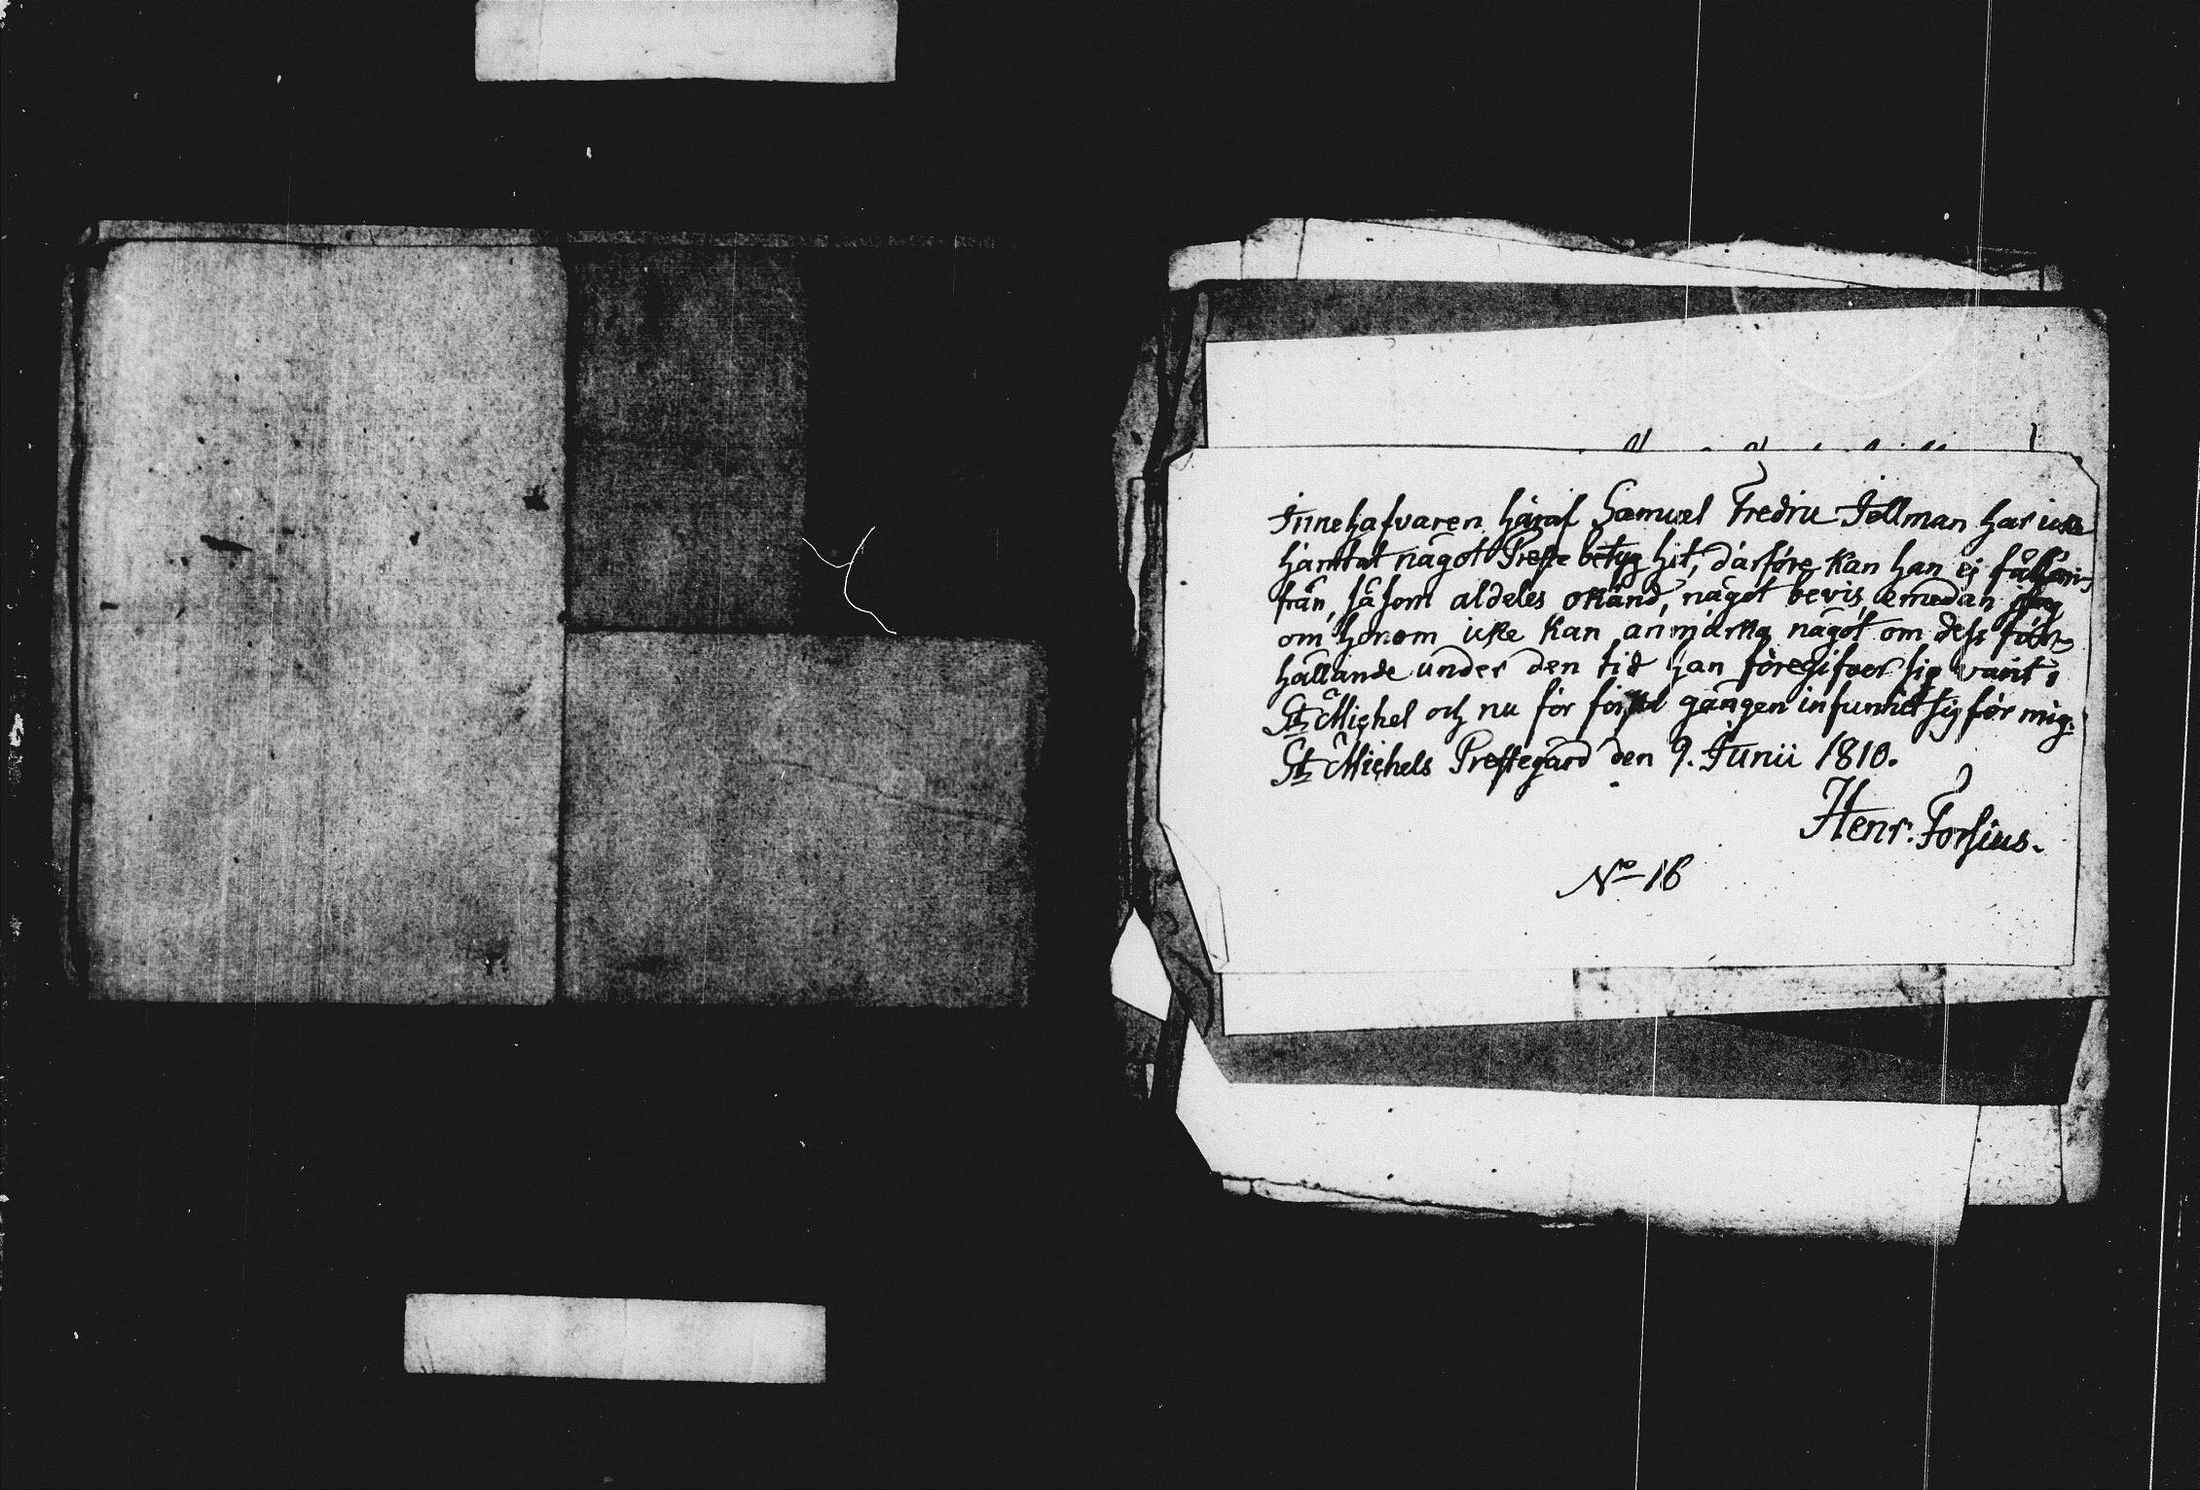 Innehafvaren häraf Samuel Fredric Tollman har icke
hämtat något Preste betyg hit, därföre kan han ej få här-
från, såsom aldeles okänd, något bevis, emedan jag
om honom icke kan anmärka något om dess för-
hållande under den tid han föregifver sig varit i
St Michel och nu för första gången infunnit sig för mig.
St Michels Prestegård den 9. Junii 1810.
Henr. Forsius.
No 16